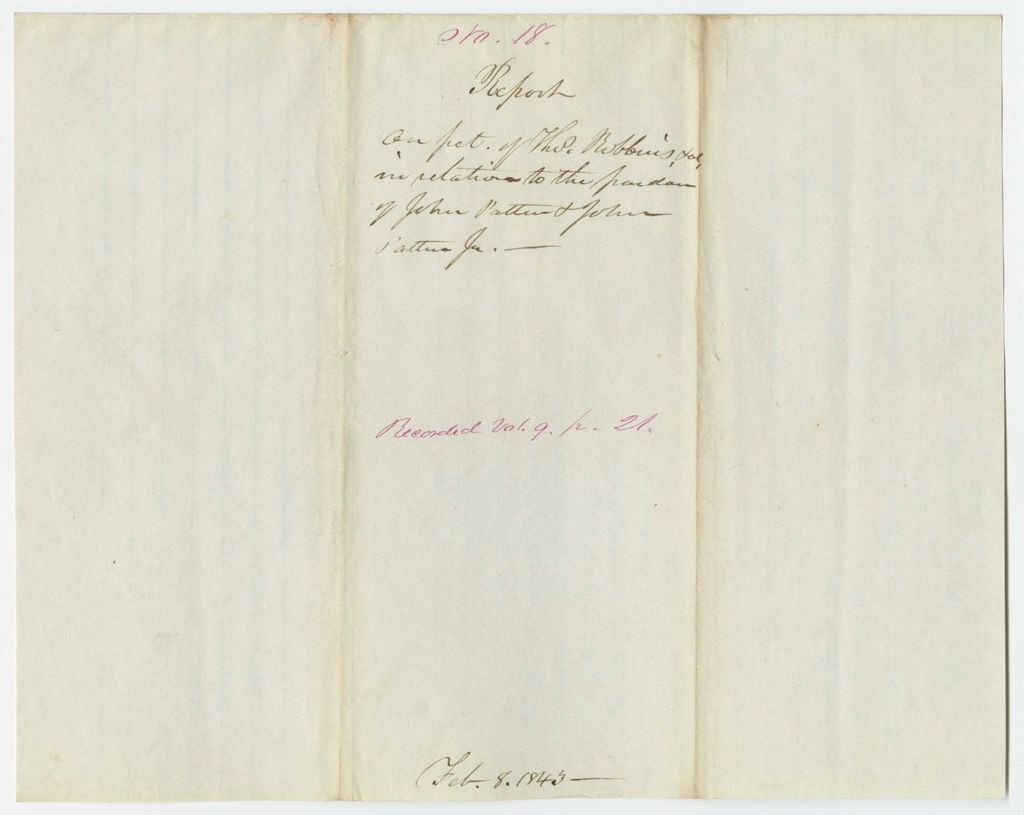 No. 18.
Report
on pet. of Tho.s Robbins, & al,
in relation to the pardon
of John Patten & John
Patten Jr. —
Recorded Vol. 9. p. 21.
Feb. 8. 1843 —